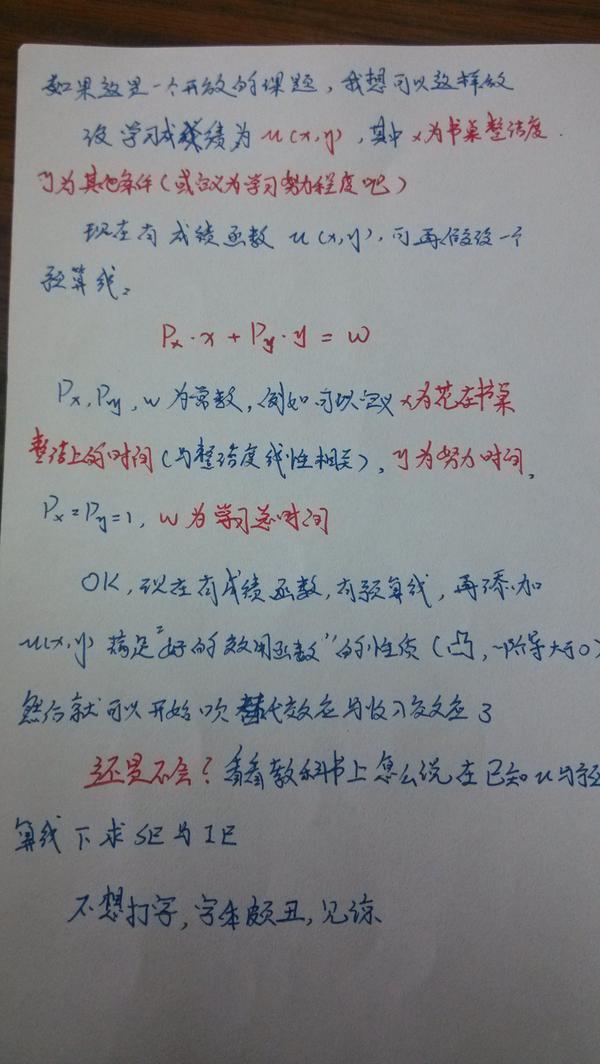 如果这是一个开放的课题，我想可以这样做
设学习成绩为u(x,y)，其中x为书桌整洁度.
y为其他条件(或定义为学习努力程度吧)
现在有成绩函数u(x,y)，可再假设一个
预算线。
Px·x + Py·y = w
Px, Py, w为常数，例如可以定义x为花在书桌
整洁上的时间(与整洁度线性相关)，y为努力时间，
Px=Py=1, w为学习总时间
OK，现在有成绩函数，有预算线，再添加
u(x,y)满足"好的效用函数"的性质(凸，一阶导大于0)
然后就可以开始吹替代效应与收入效应了
还是不会？看看教科书上怎么说在已知u与预
算线下求SE与IE
不想打字，字体颇丑，见谅